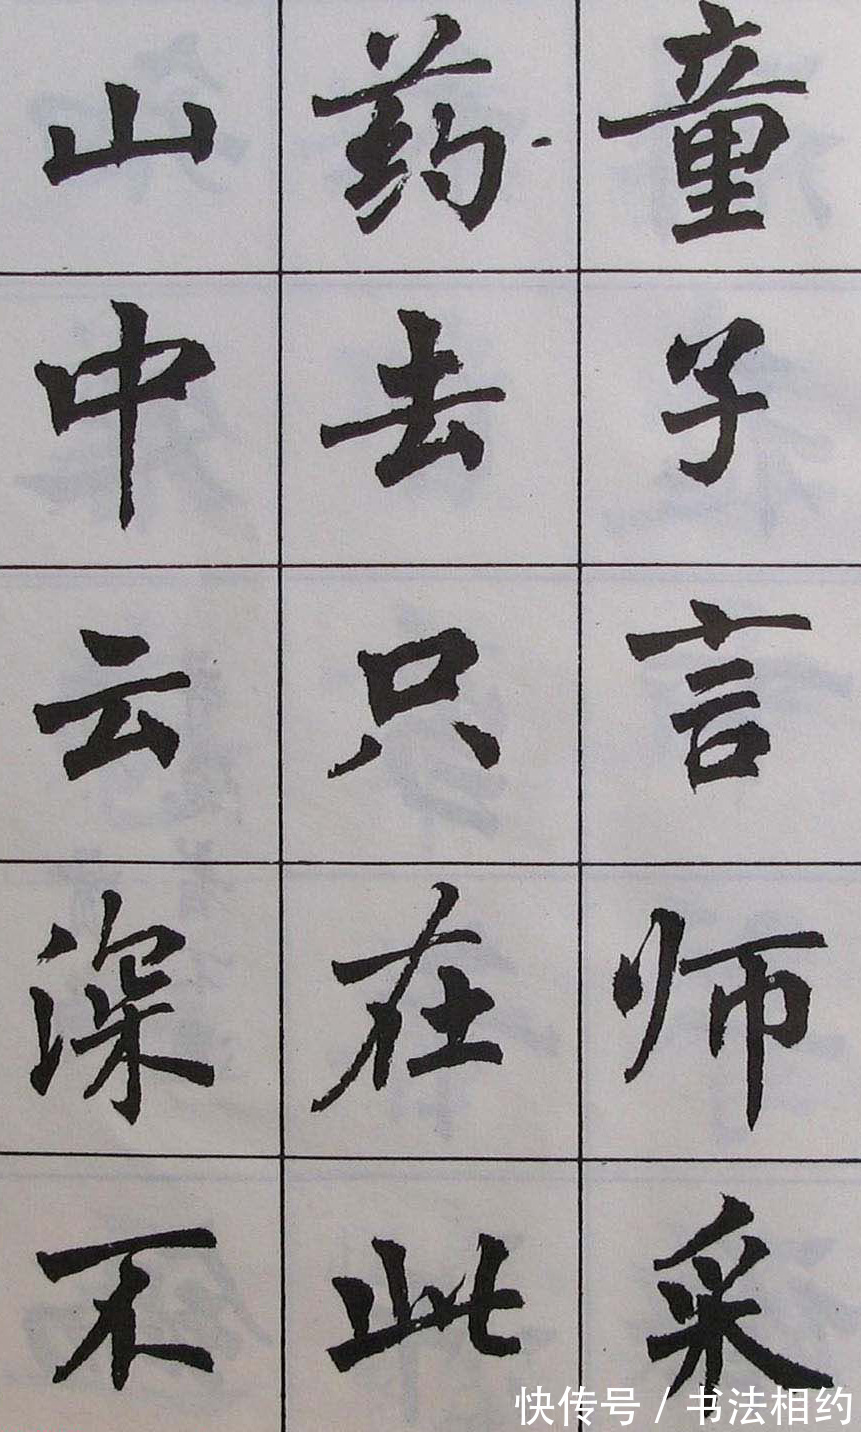 童子言师采
药去只在此
山中云深不
快传号 / 书法相约